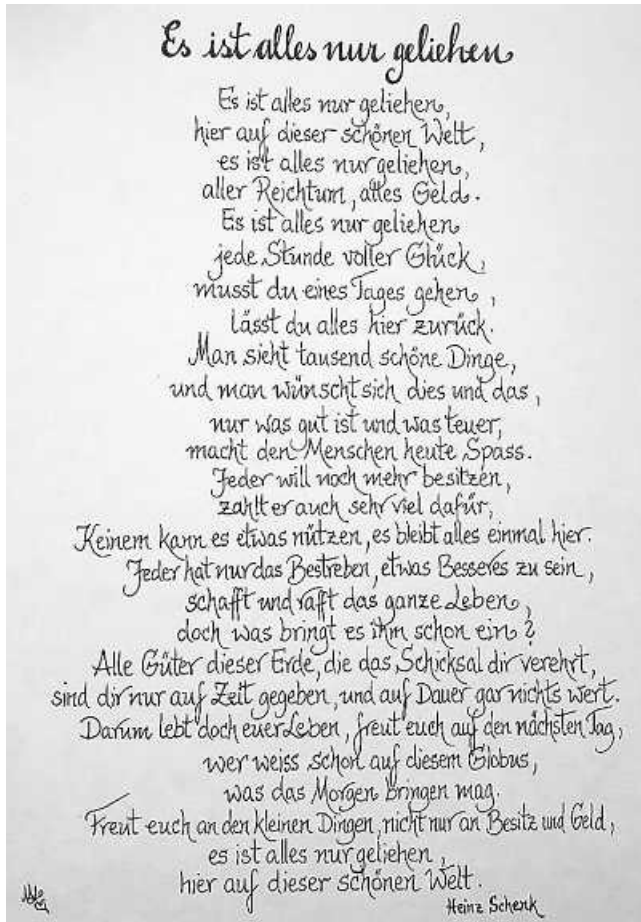 Es ist alles nur geliehen
Es ist alles nur geliehen,
hier auf dieser schönen Welt,
es ist alles nur geliehen,
aller Reichtum, alles Geld.
Es ist alles nur geliehen
jede Stunde voller Glück,
musst du eines Tages gehen,
lässt du alles hier zurück.
Man sieht tausend schöne Dinge,
und man wünscht sich dies und das,
nur was gut ist und was teuer,
macht den Menschen heute Spass.
Jeder will noch mehr besitzen,
zahlt er auch sehr viel dafür,
Keinem kann es etwas nützen, es bleibt alles einmal hier.
Jeder hat nur das Bestreben, etwas Besseres zu sein,
schafft und rafft das ganze Leben,
doch was bringt es ihm schon ein?
Alle Güter dieser Erde, die das Schicksal dir verehrt,
sind dir nur auf Zeit gegeben, und auf Dauer gar nichts wert.
Darum lebt doch euer Leben, freut euch auf den nächsten Tag,
wer weiss schon auf diesem Globus,
was das Morgen bringen mag.
Freut euch an den kleinen Dingen, nicht nur an Besitz und Geld,
es ist alles nur geliehen,
hier auf dieser schönen Welt.
Heinz Schenk